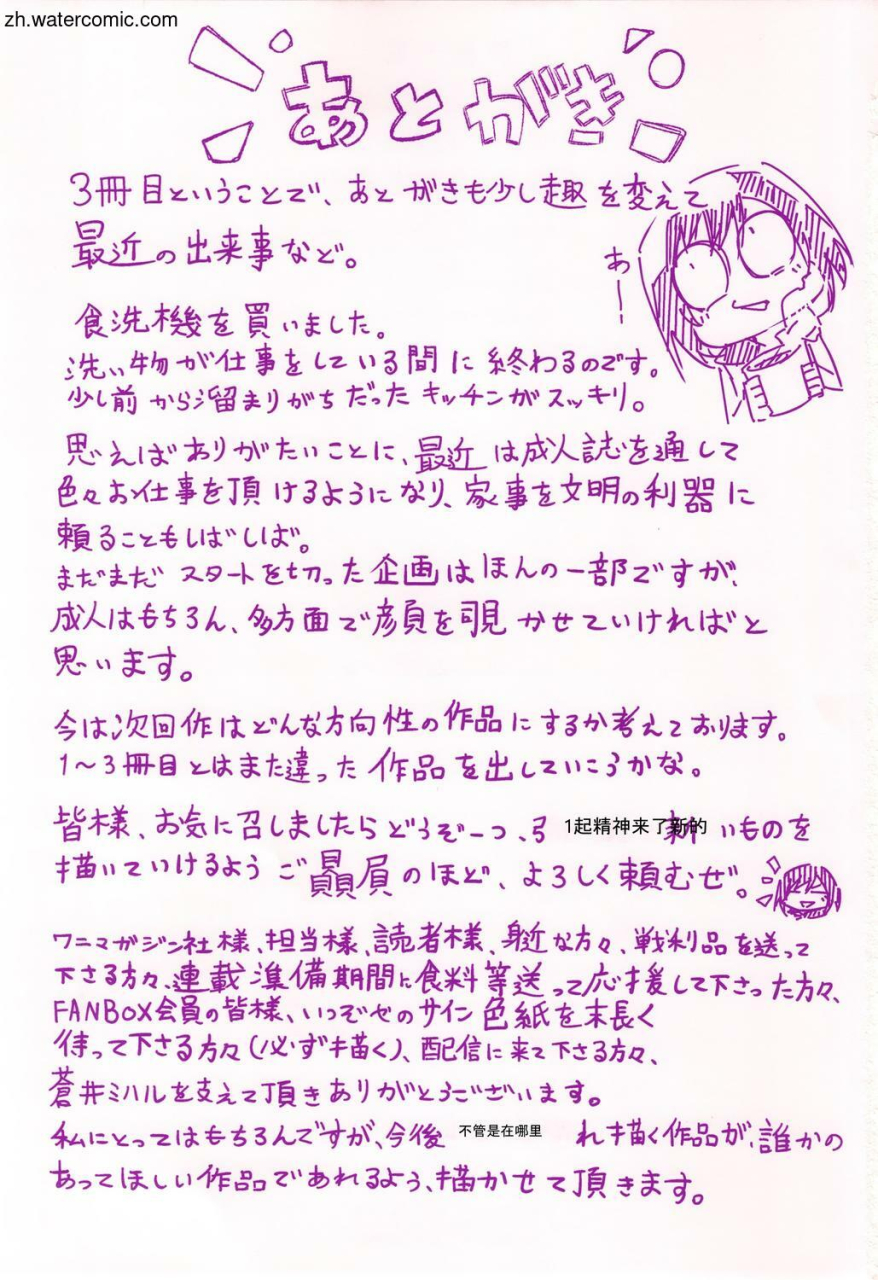 zh.watercomic.com
あとがき
3冊目ということで、あとがきも少し趣を変えて
最近の出来事など。
あーー
食洗機を買いました。
洗い物が仕事をしている間に終わるのです。
少し前から溜まりがちだったキッチンがスッキリ。
思えばありがたいことに、最近は成人誌を通して
色々お仕事を頂けるようになり、家事を文明の利器に
頼ることもしばしば。
まだまだスタートを切った企画はほんの一部ですが、
成人はもちろん、多方面で顔を覗かせていければと
思います。
今は次回作はどんな方向性の作品にするか考えております。
1〜3冊目とはまた違った作品を出していこうかな。
皆様、お気に召しましたらどうぞ一つ、弓 1起精神来了新的 いものを
描いていけるようご贔屓のほど、よろしく頼むぜ。
ワニマガジン社様、担当様、読者様、身近な方々、戦利品を送って
下さる方々、連載準備期間に食料等送って応援して下さった方々、
FANBOX会員の皆様、いつぞやのサイン色紙を末長く
待って下さる方々(必ず描く)、配信に来て下さる方々、
蒼井ミハルを支えて頂きありがとうございます。
私にとってはもちろんですが、今後 不管是在哪里 れ描く作品が、誰かの
あってほしい作品であれるよう、描かせて頂きます。